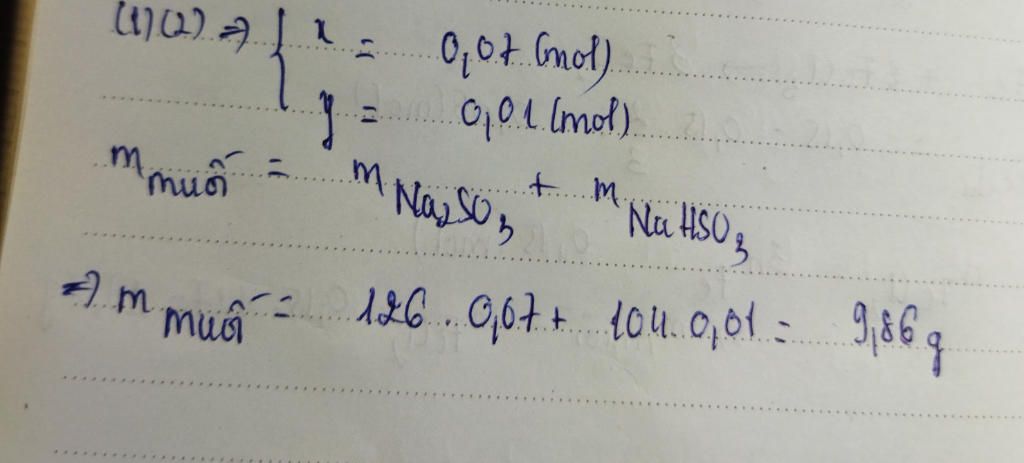 (1)(2) => { x = 0,07 (mol)
y = 0,01 (mol)
m muối = m Na₂SO₃ + m NaHSO₃
=> m muối = 126 . 0,07 + 104 . 0,01 = 9,86 g